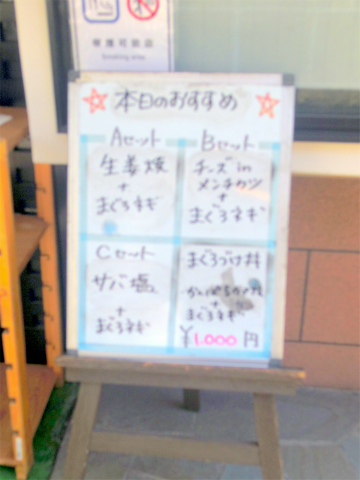 喫煙可能店
Smoking area
本日のおすすめ
Aセット
生姜焼
+
まぐろネギ
Bセット
チーズin
メンチカツ
+
まぐろネギ
Cセット
サバ塩
+
まぐろネギ
まぐろづけ丼
+
まぐろネギ
¥1,000円